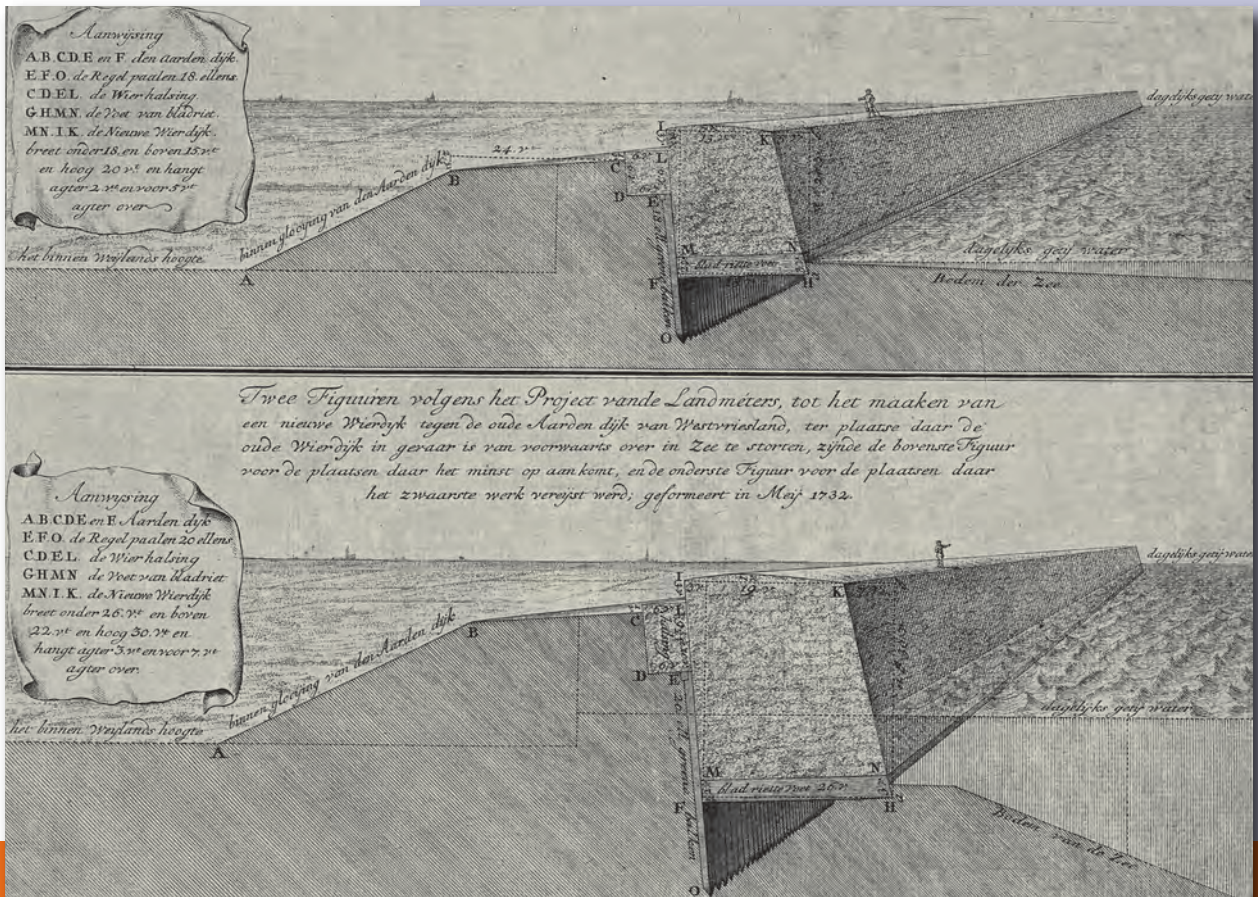 Aanwijsing
A.B.C.D.E en F. den Aarden dijk.
E.F.O. de Regel paalen 18. ellens
C.D.E.L. de Wier halsing.
G.H.M.N. de Voet van bladriet.
M.N.I.K. de Nieuwe Wierdijk.
breet onder 18. en boven 15. vt
en hoog 20 vt. en hangt
agter 2. vt en voor 5 vt
agter over
dagelijks getij water
I
K
L
24. vt
B
C
D
E
binnen glooijing van den Aarden dijk
het binnen Weijlands hoogte
A
M
N
dagelijks getij water
F
H
Bodem der Zee
O
Twee Figuuren volgens het Project vande Landmeters, tot het maaken van
een nieuwe Wierdyk tegen de oude Aarden dijk van Westvriesland, ter plaatse daar de
oude Wierdijk in gevaar is van voorwaarts over in Zee te storten, zijnde de bovenste Figuur
voor de plaatsen daar het minst op aan komt, en de onderste Figuur voor de plaatsen daar
het zwaarste werk vereijst werd; geformeert in Meij 1732.
Aanwysing
A.B.C.D.E en F Aarden dyk
E.F.O. de Regel paalen 20 ellens
C.D.E.L. de Wier halsing
G.H.M.N de Voet van bladriet
M.N.I.K. de Nieuwe Wierdijk
breet onder 26. vt en boven
22. vt en hoog 30. vt en
hangt agter 3. vt en voor 7. vt
agter over.
dagelijks getij water
I
19. vt
K
C
B
D
E
binnen glooijing van den Aarden dijk
dagelijks getij water
het binnen Weijlands hoogte
A
M
N
blad riette voet 26. v
F
H
Bodem van de Zee
O